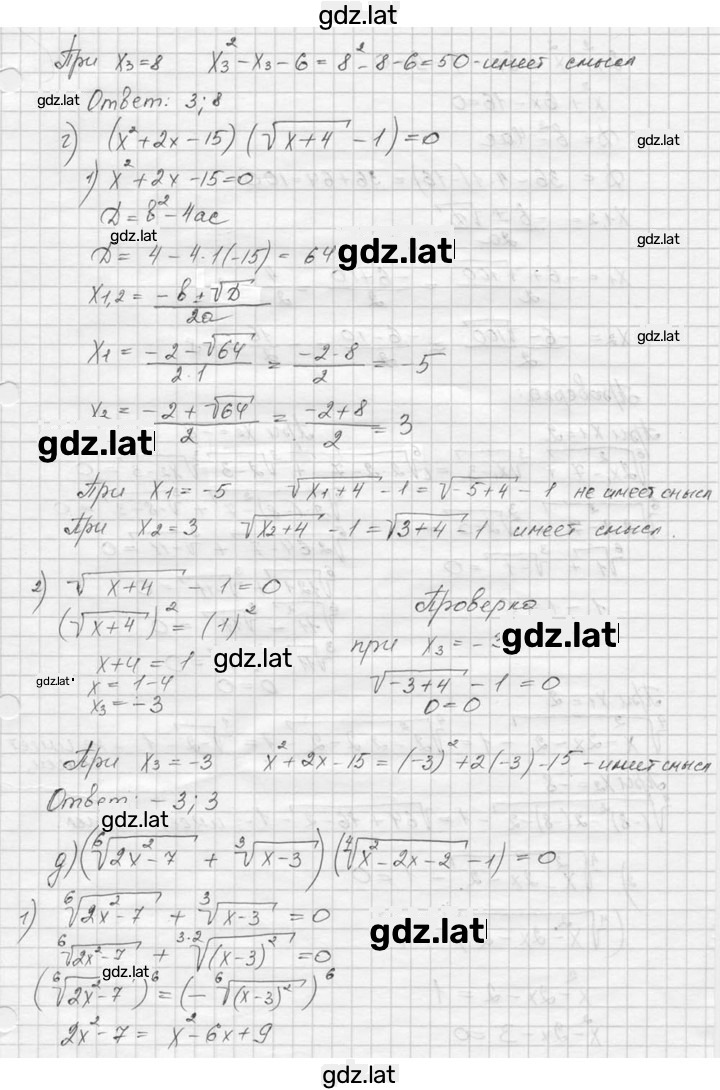 gdz.lat
При x₃=8 x₃²-x₃-6=8²-8-6=50-имеет смысл
gdz.lat Ответ: 3; 8
г) (x²+2x-15)(√(x+4) -1)=0 gdz.lat
1) x²+2x-15=0
D=b²-4ac
gdz.lat gdz.lat gdz.lat
D= 4-4·1(-15)= 64
x₁,₂= (-b±√D)/2a
x₁= (-2-√64)/(2·1) = (-2-8)/2 = -5 gdz.lat
x₂= (-2+√64)/2 = (-2+8)/2 = 3
gdz.lat
При x₁=-5 √(x₁+4) -1=√(-5+4) -1 не имеет смысл
При x₂=3 √(x₂+4) -1=√(3+4) -1 имеет смысл.
2) √(x+4) -1=0
Проверка
(√(x+4))²=(1)²
при x₃=- gdz.lat
x+4=1 gdz.lat
√(-3+4) -1=0
gdz.lat x=1-4
x₃=-3 0=0
При x₃=-3 x²+2x-15=(-3)²+2(-3)-15-имеет смысл
Ответ: -3; 3
gdz.lat
д) (⁶√(2x²-7) + ³√(x-3))(⁴√(x²-2x-2) -1)=0
1) ⁶√(2x²-7) + ³√(x-3) =0
gdz.lat
⁶√(2x²-7) + ³·²√((x-3)²) =0
gdz.lat
(⁶√(2x²-7))⁶=(-⁶√((x-3)²))⁶
2x²-7= x²-6x+9
gdz.lat